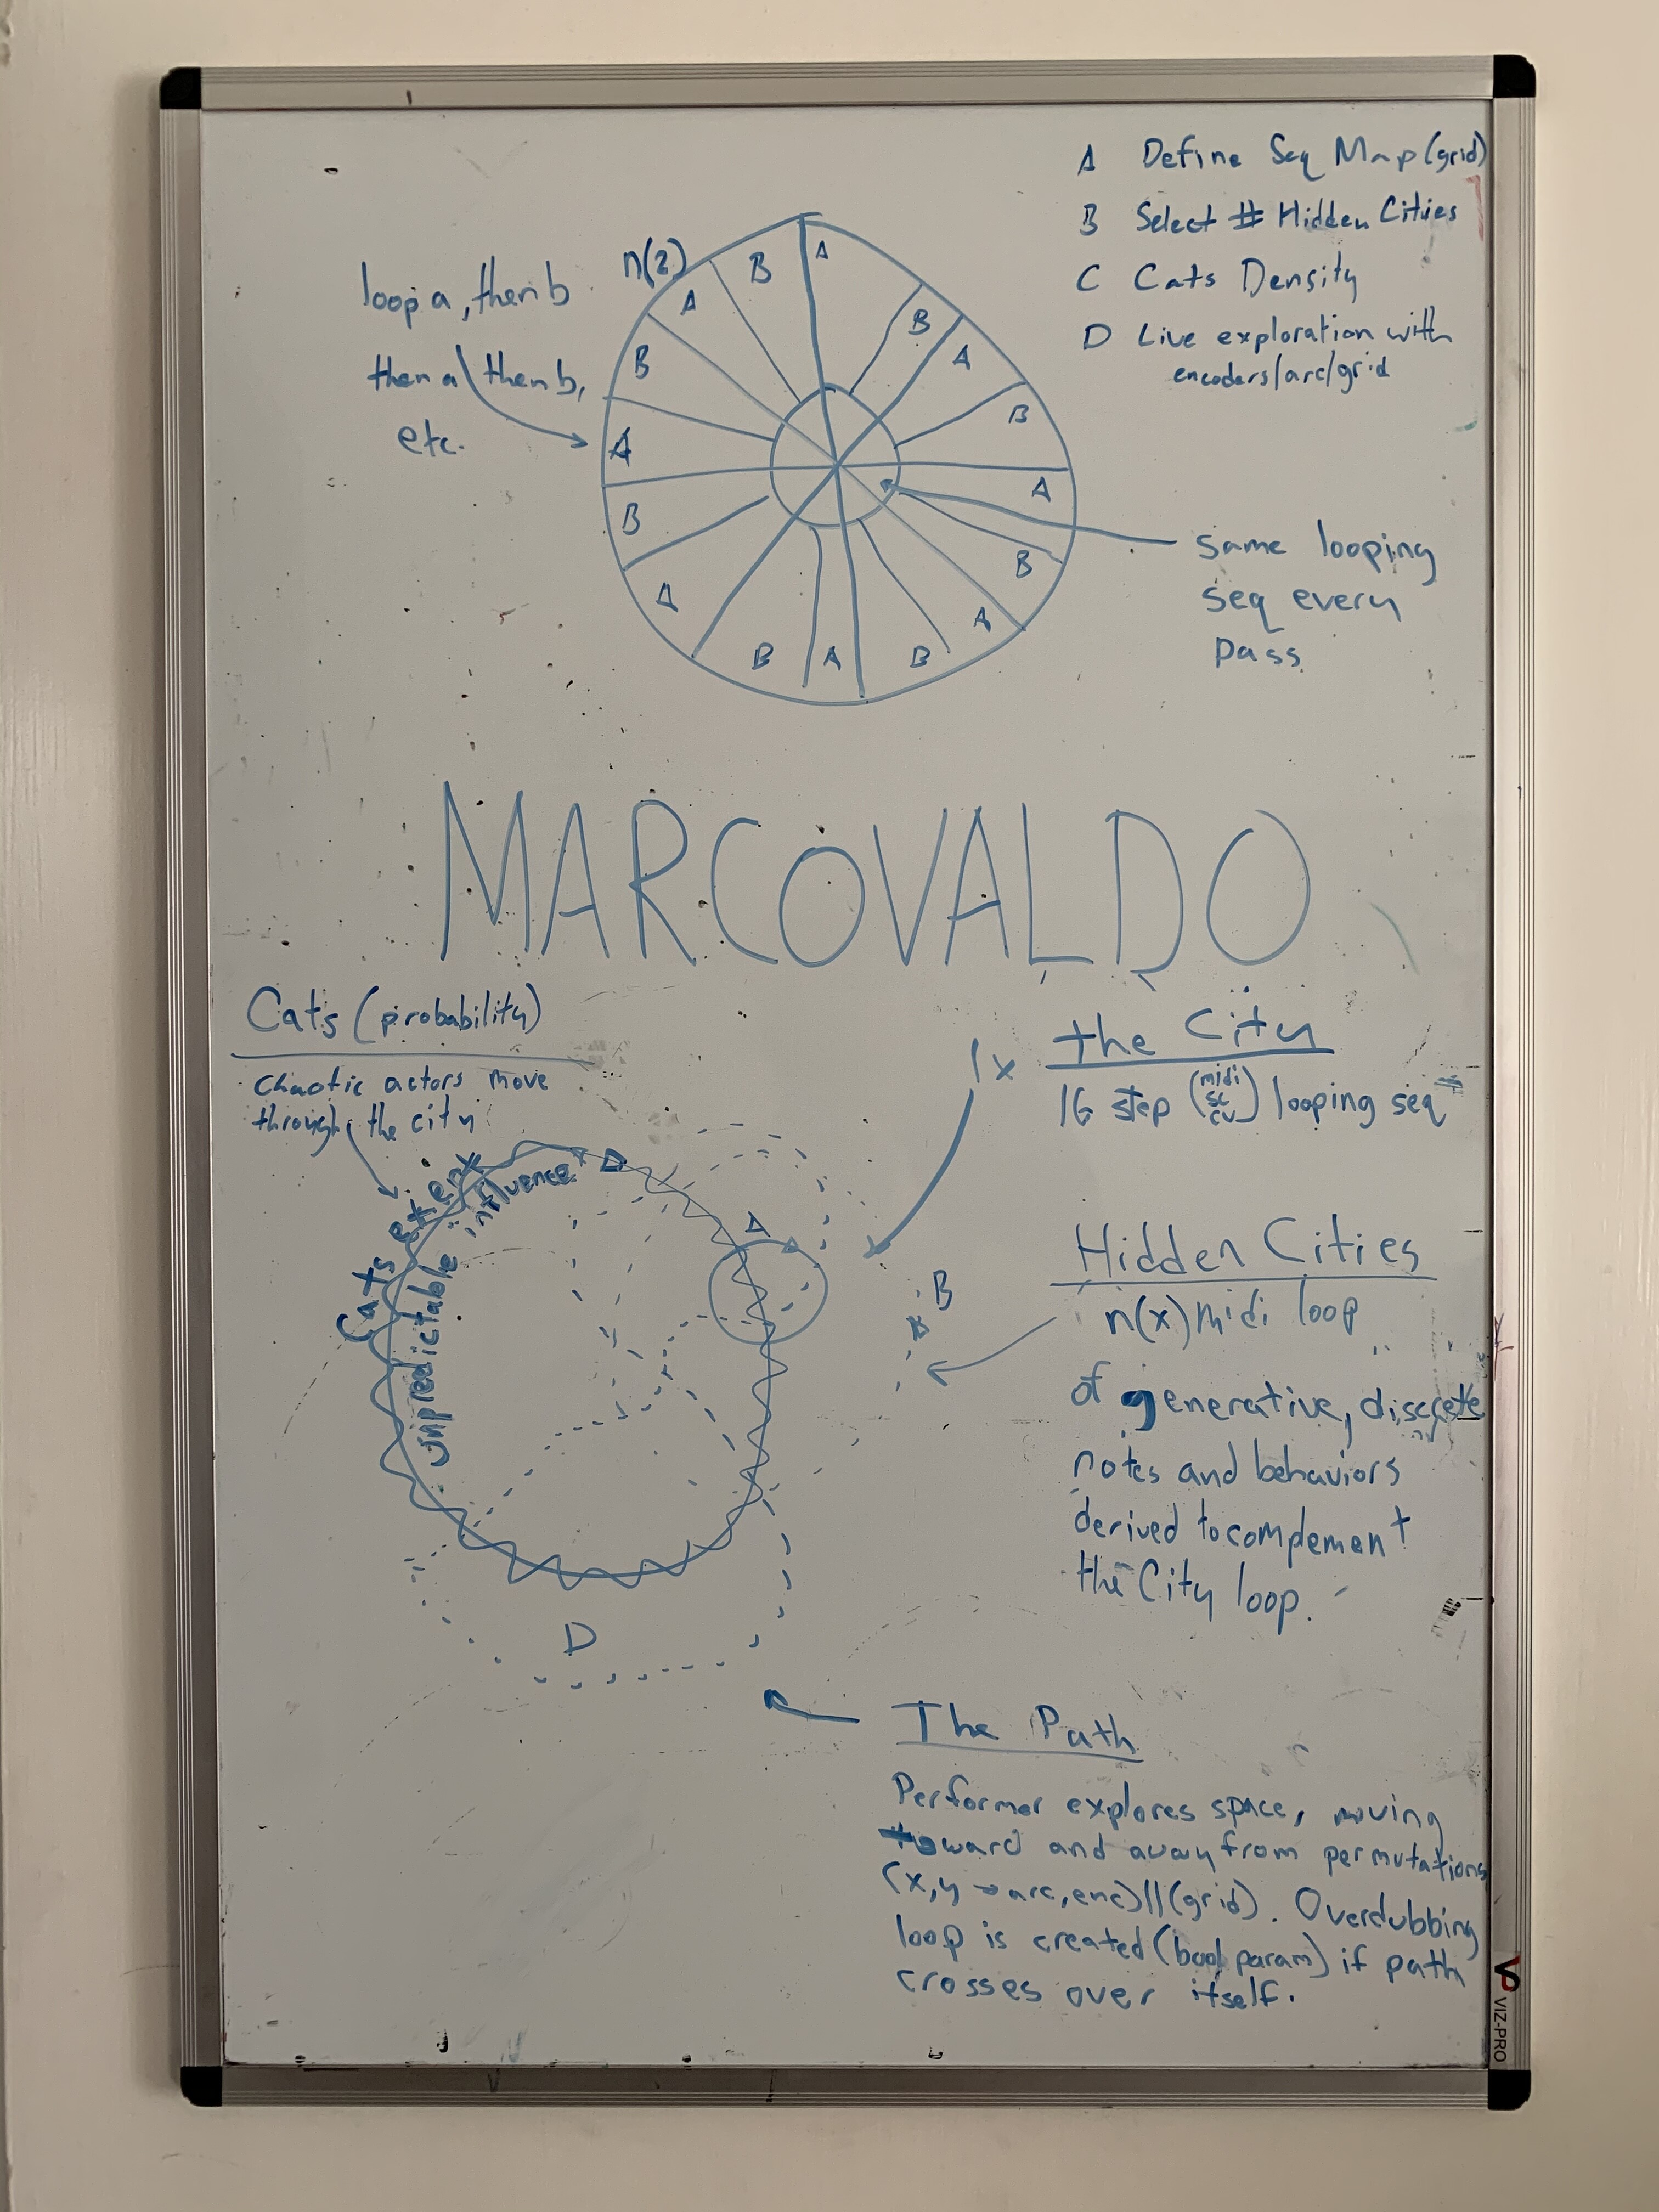 A Define Seq Map (grid)
B Select # Hidden Cities
C Cats Density
D Live exploration with
encoders/arc/grid
n(2)
loop a, then b
then a then b,
etc.
A
B
A
B
A
B
A
B
A
B
A
B
A
B
A
B
same looping
seq every
pass
MARCOVALDO
Cats (probability)
chaotic actors move
through the city
1x
the City
16 step (midi
sc
cv) looping seq
Cats extent
unpredictable influence
D
A
B
D
Hidden Cities
n(x) midi loop
of generative, discrete
notes and behaviors
derived to complement
the City loop.
The Path
Performer explores space, moving
toward and away from permutations
(x,y → arc,enc)||(grid). Overdubbing
loop is created (bool param) if path
crosses over itself.
VIZ-PRO